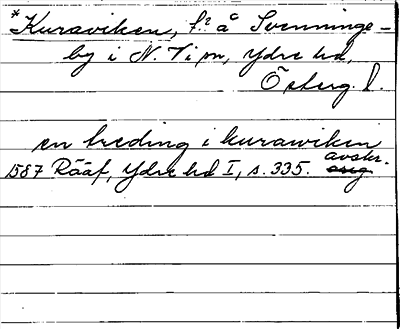 *Kuraviken, f.? å Svenninge-
by i N. Vi sn, Ydre hd,
Österg. l.
en treding i kurawiken
avskr.
1587 Rääf, Ydre hd I, s. 335. orig